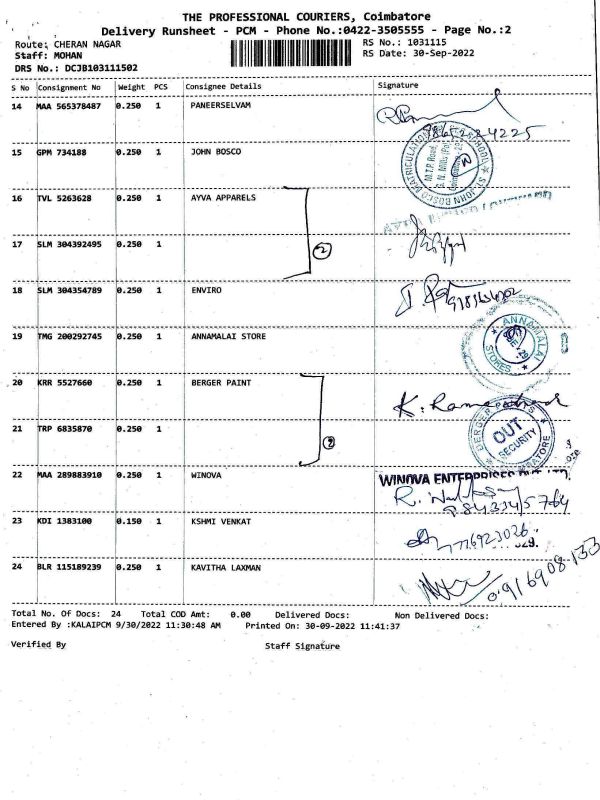 THE PROFESSIONAL COURIERS, Coimbatore
Delivery Runsheet - PCM - Phone No.:0422-3505555 - Page No.:2
Route: CHERAN NAGAR RS No.: 1031115
Staff: MOHAN RS Date: 30-Sep-2022
DRS No.: DCJB103111502
S No Consignment No Weight PCS Consignee Details Signature
14 MAA 565378487 0.250 1 PANEERSELVAM
15 GPM 734188 0.250 1 JOHN BOSCO
ST. JOHN BOSCO MATRICULATION SCHOOL
M.T.P. Road,
16 TVL 5263628 0.250 1 AYVA APPARELS
17 SLM 304392495 0.250 1
2
18 SLM 304354789 0.250 1 ENVIRO
19 TMG 200292745 0.250 1 ANNAMALAI STORE
ANNAMALAI STORES
20 KRR 5527660 0.250 1 BERGER PAINT
21 TRP 6835870 0.250 1
2
BERGER PAINTS
OUT
SECURITY
22 MAA 289883910 0.250 1 WINOVA
WINOVA ENTERPRISES
23 KDI 1383100 0.150 1 KSHMI VENKAT
24 BLR 115189239 0.250 1 KAVITHA LAXMAN
Total No. Of Docs: 24 Total COD Amt: 0.00 Delivered Docs: Non Delivered Docs:
Entered By :KALAIPCM 9/30/2022 11:30:48 AM Printed On: 30-09-2022 11:41:37
Verified By Staff Signature